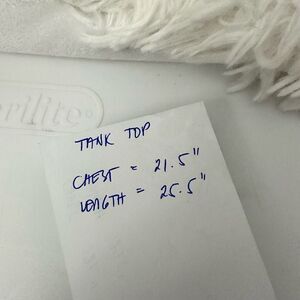 erilite®
TANK TOP
CHEST = 21.5"
LENGTH = 25.5"